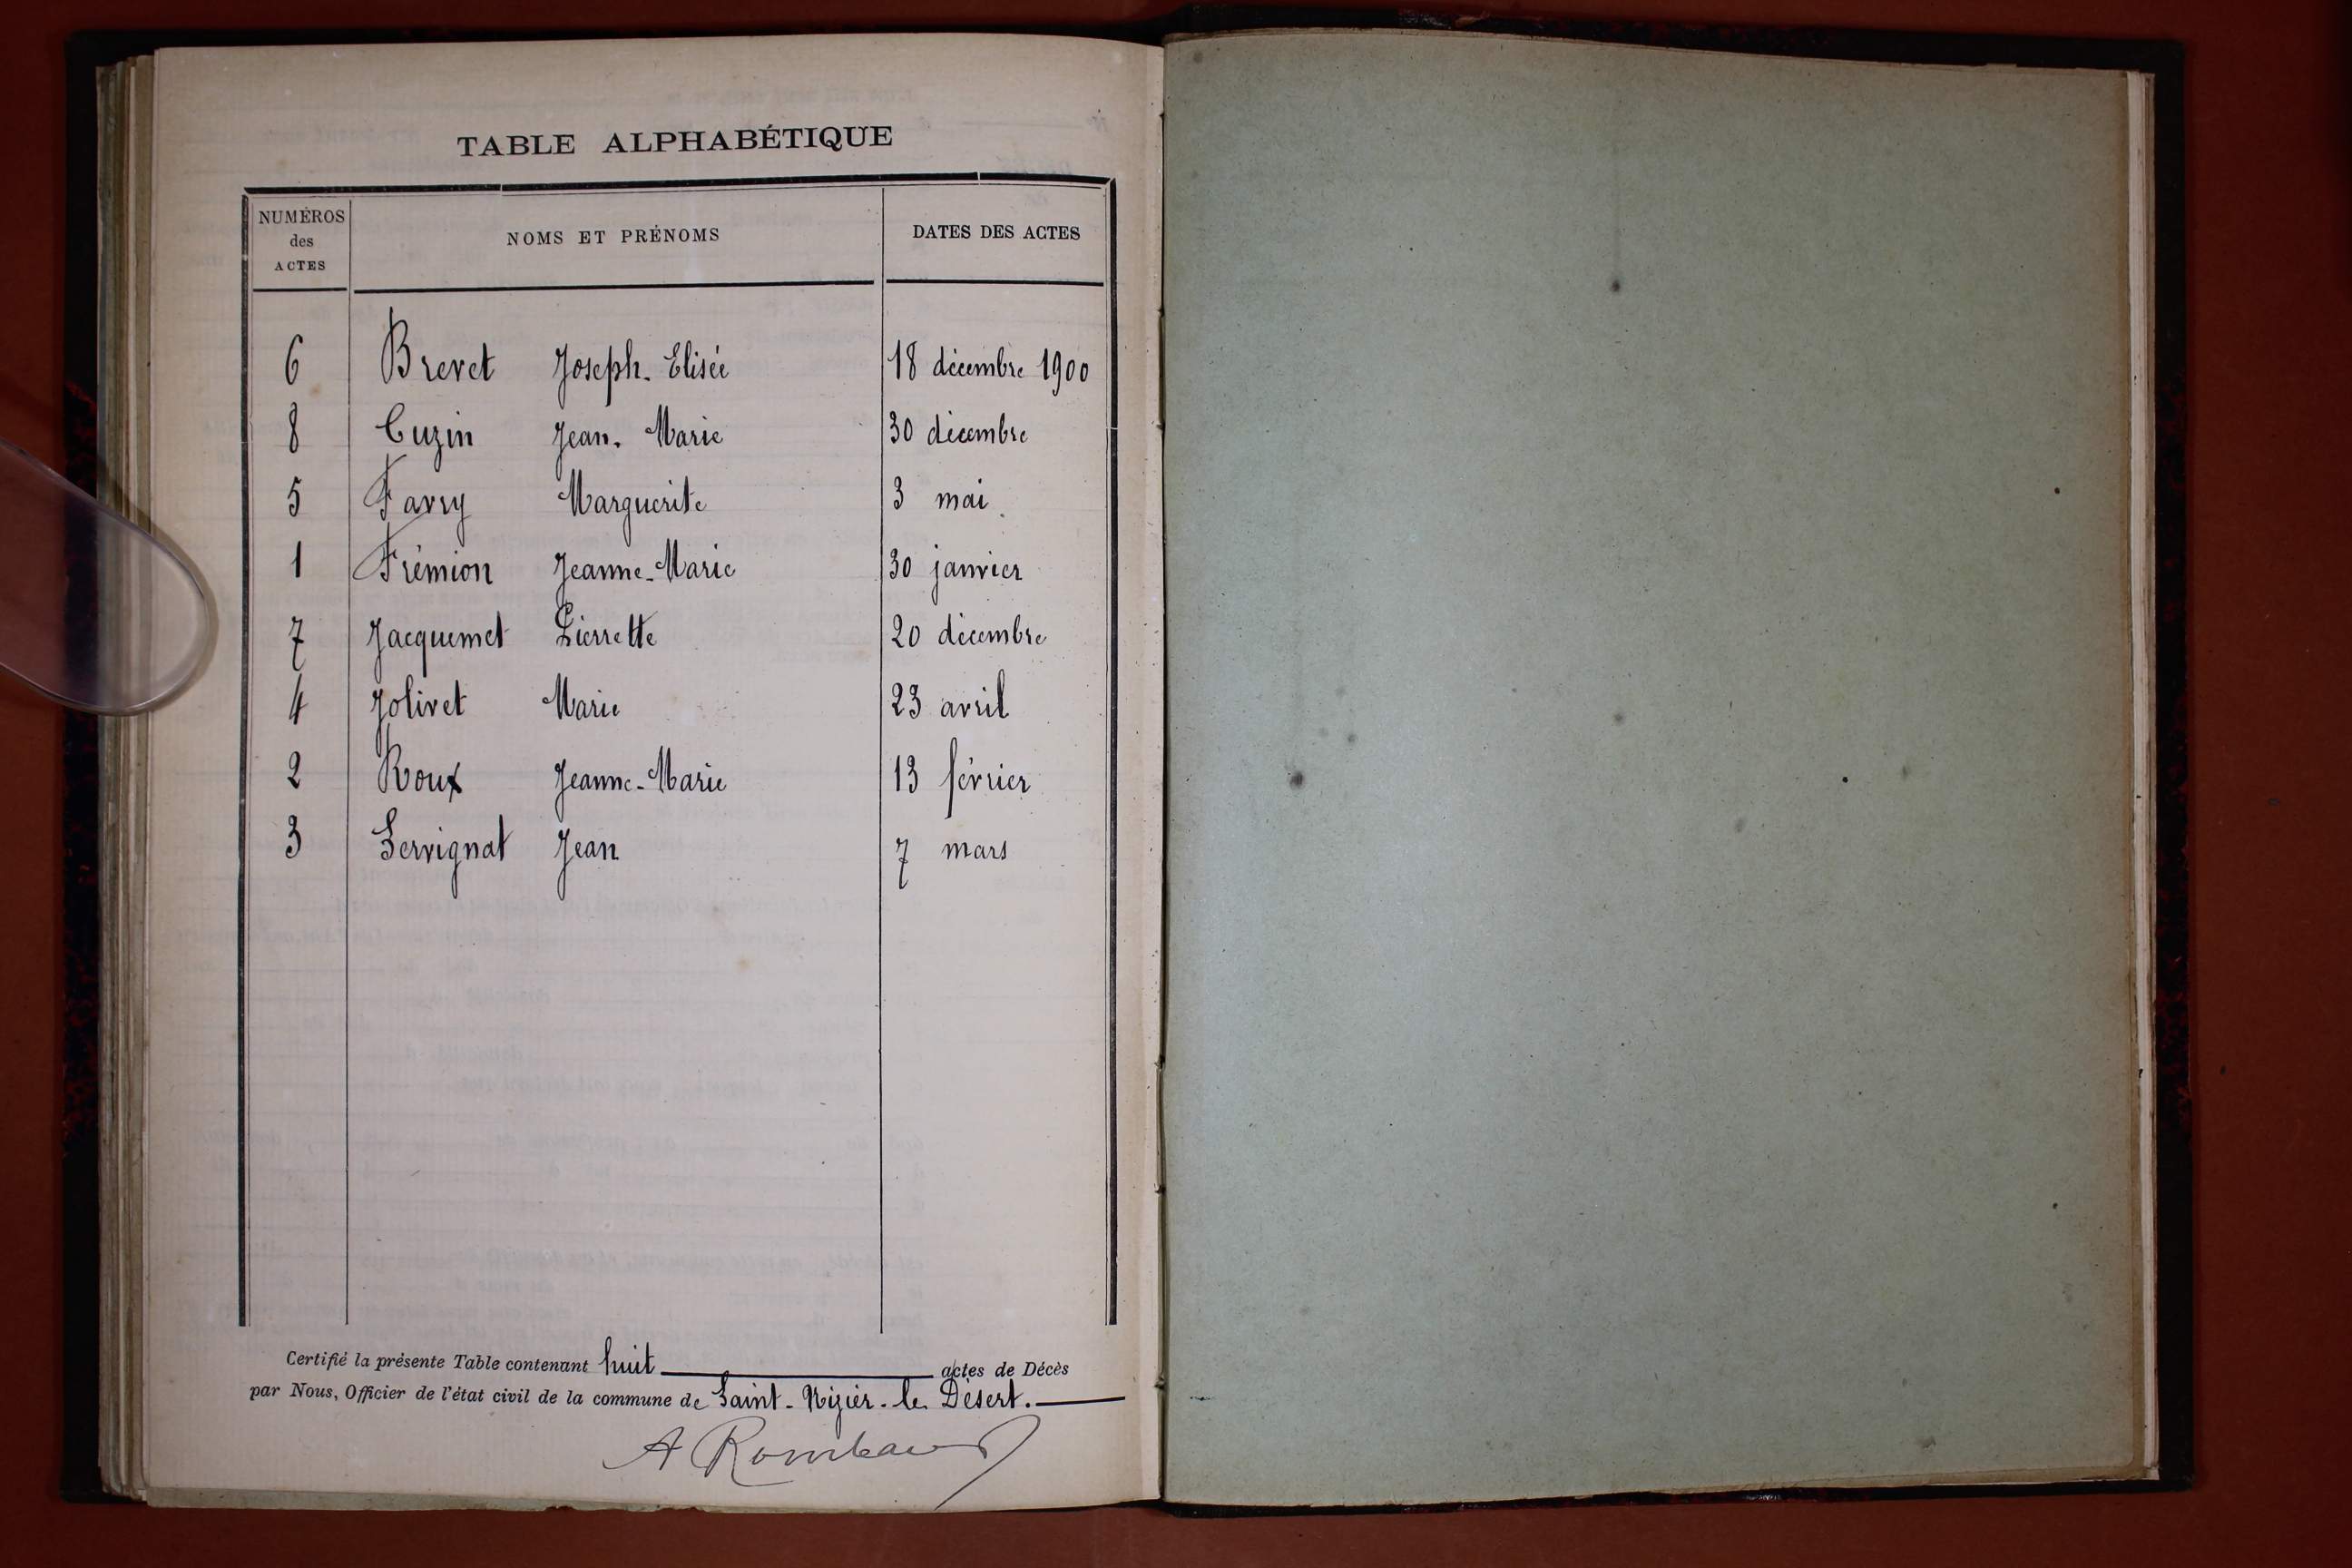 TABLE ALPHABÉTIQUE
NUMÉROS
des
ACTES
NOMS ET PRÉNOMS
DATES DES ACTES
6 Brevet Joseph-Elisée 18 décembre 1900
8 Cuzin Jean-Marie 30 décembre
5 Favry Marguerite 3 mai
1 Frémion Jeanne-Marie 30 janvier
7 Jacquemet Pierrette 20 décembre
4 Jolivet Marie 23 avril
2 Roux Jeanne-Marie 13 février
3 Servignat Jean 7 mars
Certifié la présente Table contenant huit actes de Décès
par Nous, Officier de l'état civil de la commune de Saint-Nizier-le Désert.
A